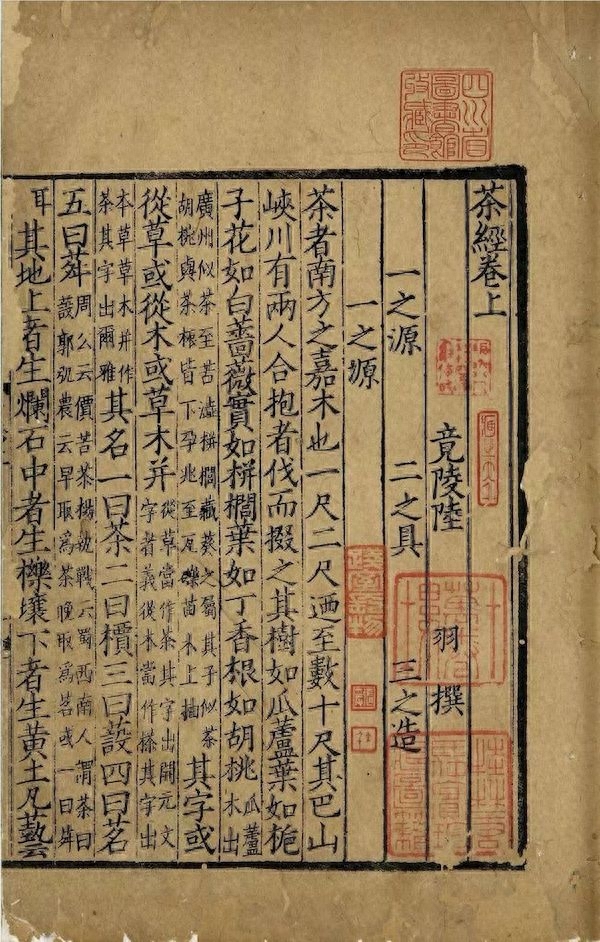 四川省
圖書館
收藏印
茶經卷上
竟陵陸 羽 撰
一之源 二之具 三之造
一之源
茶者南方之嘉木也一尺二尺迺至數十尺其巴山
峽川有兩人合抱者伐而掇之其樹如瓜蘆葉如梔
子花如白薔薇實如栟櫚葉如丁香根如胡桃瓜蘆木出
廣州似茶至苦澁栟櫚藏葵之屬其子似茶胡桃與茶根皆下孕兆至瓦礫苗木上抽其字或
從草或從木或草木并從草當作茶其字出開元文字者義從木當作搽其字出
本草草木并作茶其字出爾雅其名一曰茶二曰檟三曰蔎四曰茗
五曰荈周公云價苦茶楊執戟云蜀西南人謂茶曰蔎郭弘農云早取爲茶晚取爲茗或一曰荈
耳其地上者生爛石中者生櫟壤下者生黃土凡藝